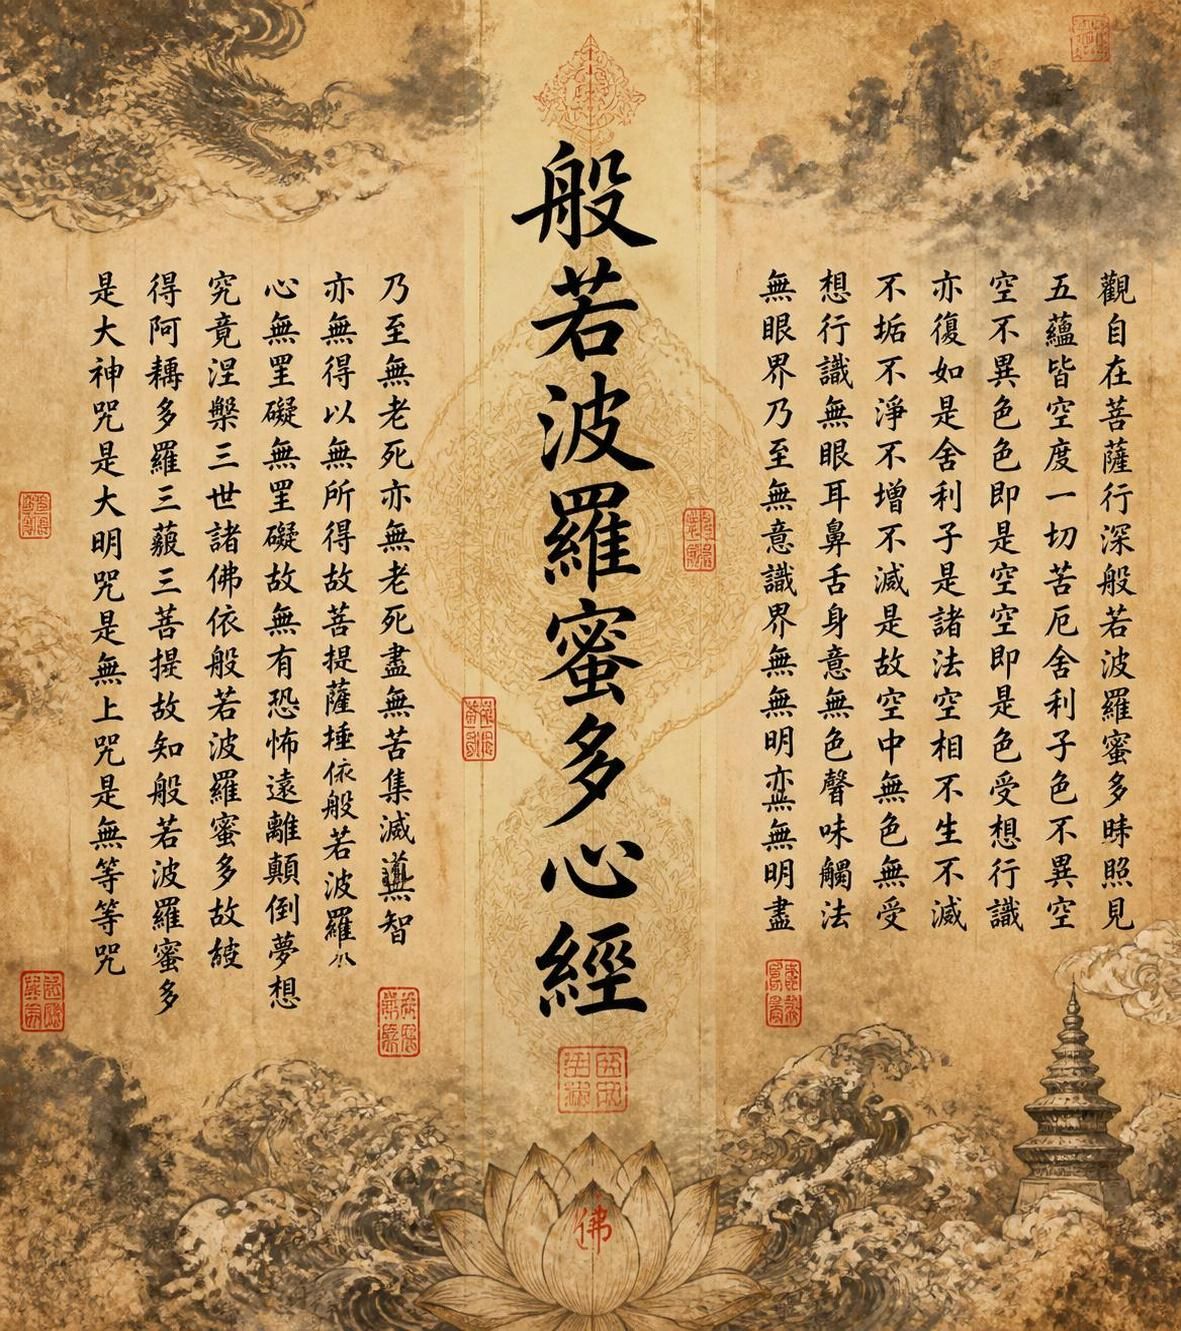 般若波羅蜜多心經
觀自在菩薩行深般若波羅蜜多照見
五蘊皆空度一切苦厄舍利子色不異空
空不異色色即是空空即是色受想行識
亦復如是舍利子是諸法空相不生不滅
不垢不淨不增不滅是故空中無色無受
想行識無眼耳鼻舌身意無色聲味觸法
無眼界乃至無意識界無無明亦無無明盡
乃至無老死亦無老死盡無苦集滅智
亦無得以無所得故菩提薩埵依般若波羅
心無罣礙無罣礙故無有恐怖遠離顛倒夢想
究竟涅槃三世諸佛依般若波羅蜜多故
得阿多羅三三菩提故知般若波羅蜜多
是大神咒是大明咒是無上咒是無等等咒
佛